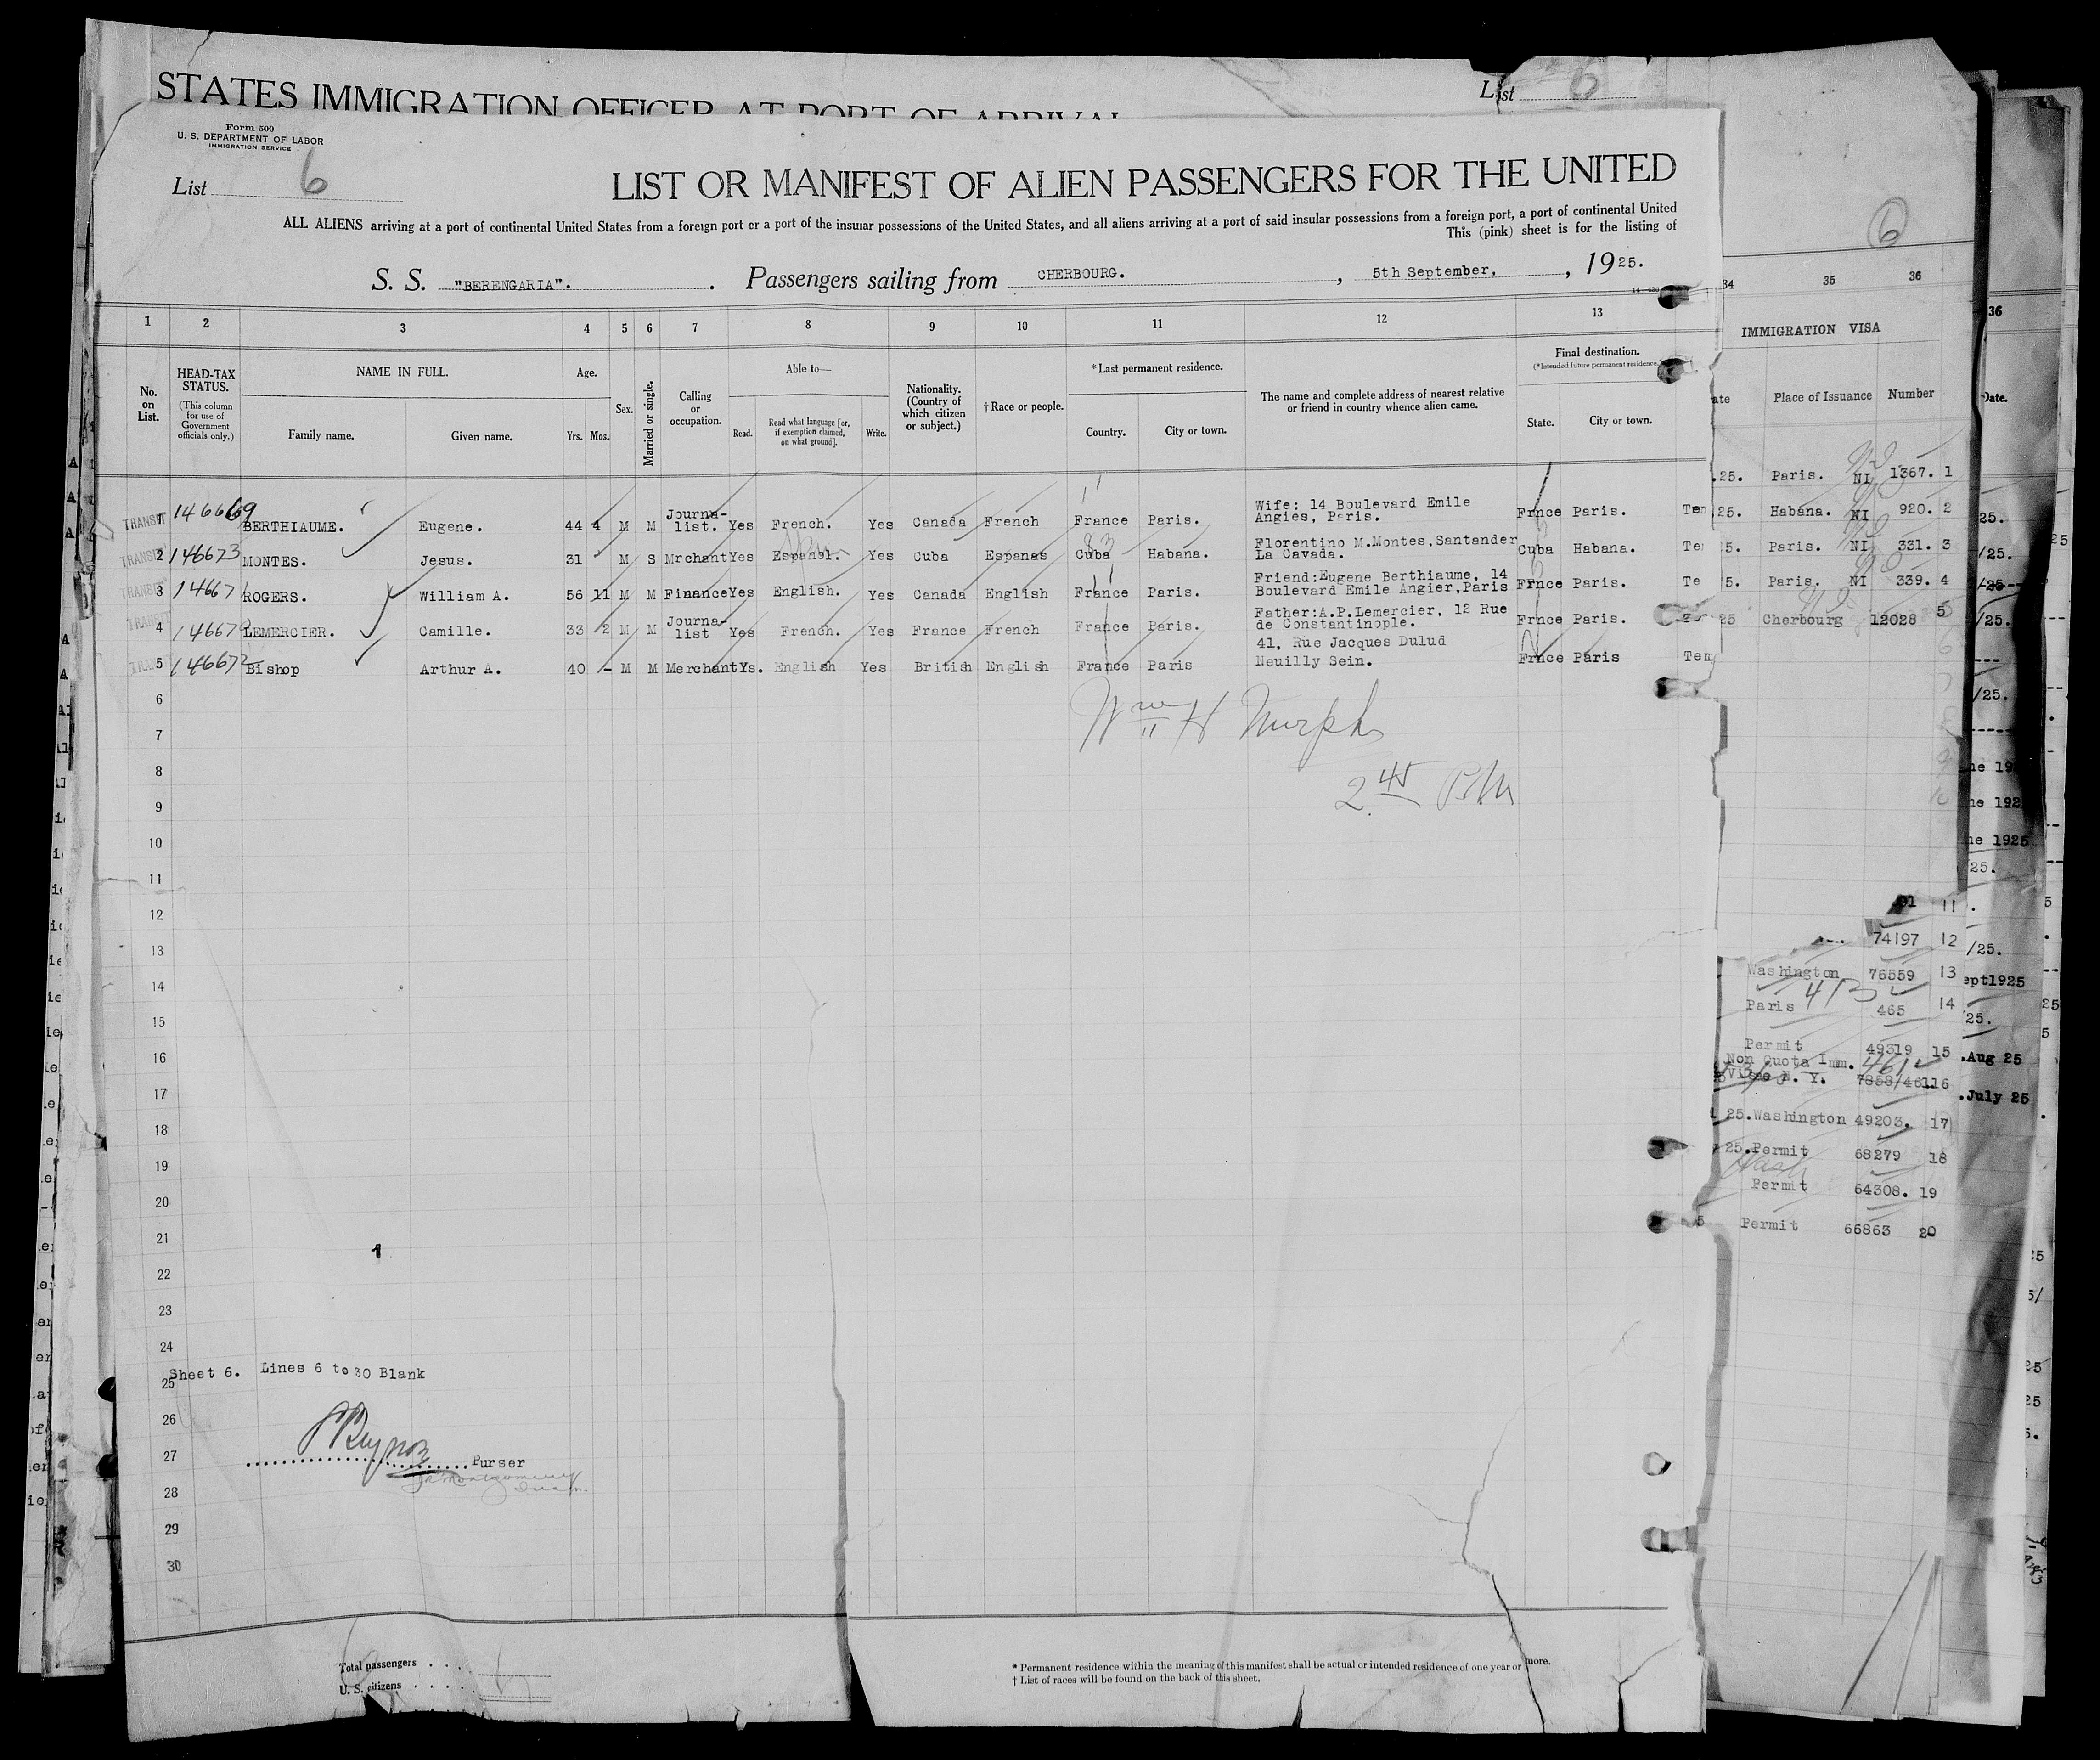 STATES IMMIGRATION OFFICER AT PORT OF ARRIVAL
List 6
Form 500
U. S. DEPARTMENT OF LABOR
IMMIGRATION SERVICE
List 6
LIST OR MANIFEST OF ALIEN PASSENGERS FOR THE UNITED
ALL ALIENS arriving at a port of continental United States from a foreign port or a port of the insular possessions of the United States, and all aliens arriving at a port of said insular possessions from a foreign port, a port of continental United
This (pink) sheet is for the listing of
S. S. "BERENGARIA". Passengers sailing from CHERBOURG. , 5th September, , 1925.
1 2 3 4 5 6 7 8 9 10 11 12 13
No. on List.
HEAD-TAX STATUS.
(This column for use of Government officials only.)
NAME IN FULL.
Family name. Given name.
Age.
Yrs. Mos.
Sex.
Married or single.
Calling or occupation.
Able to—
Read. Read what language [or, if exemption claimed, on what ground]. Write.
Nationality. (Country of which citizen or subject.)
† Race or people.
*Last permanent residence.
Country. City or town.
The name and complete address of nearest relative or friend in country whence alien came.
Final destination.
(*Intended future permanent residence
State. City or town.
TRANSIT 146669 BERTHIAUME. Eugene. 44 4 M M Journa-list. Yes French. Yes Canada French France Paris. Wife: 14 Boulevard Emile Angies, Paris. Frnce Paris. Tem
TRANSIT 2 146673 MONTES. Jesus. 31 M S Mrchant Yes Espanol. Yes Cuba Espanas Cuba Habana. Florentino M.Montes,Santander La Cavada. Cuba Habana. Te
TRANSIT 3 146671 ROGERS. William A. 56 11 M M Finance Yes English. Yes Canada English France Paris. Friend:Eugene Berthiaume, 14 Boulevard Emile Angier,Paris Frnce Paris. Te
TRANSIT 4 146670 LEMERCIER. Camille. 33 2 M M Journa-list Yes French. Yes France French France Paris. Father:A.P.Lemercier, 12 Rue de Constantinople. Frnce Paris.
5 146672 Bishop Arthur A. 40 - M M Merchant Ys. English Yes British English France Paris 41, Rue Jacques Dulud Neuilly Sein. Frnce Paris Tem
6
Wm H Murph
7
8
2 45 PM
9
10
11
12
13
14
15
16
17
18
19
20
21
22
23
24
Sheet 6. Lines 6 to 30 Blank
25
26
27 Purser
28
29
30
Total passengers
U. S. citizens
* Permanent residence within the meaning of this manifest shall be actual or intended residence of one year or more.
† List of races will be found on the back of this sheet.
6
34 35 36
IMMIGRATION VISA
ate Place of Issuance Number
.25. Paris. NI 1367. 1
25. Habana. NI 920. 2
5. Paris. NI 331. 3
5. Paris. NI 339. 4
25 Cherbourg 12028 5
11
74197 12
Washington 76559 13
Paris 465 14
Permit 49319 15
Non Quota Imm.
N. Y. 16
25.Washington 49203. 17
25.Permit 68279 18
Wash
Permit 64308. 19
Permit 66863 20
36
Date.
25.
/25.
/25
/25.
/25.
ne 19
ne 192
ne 1925
25.
/25.
ept1925
25.
.Aug 25
.July 25